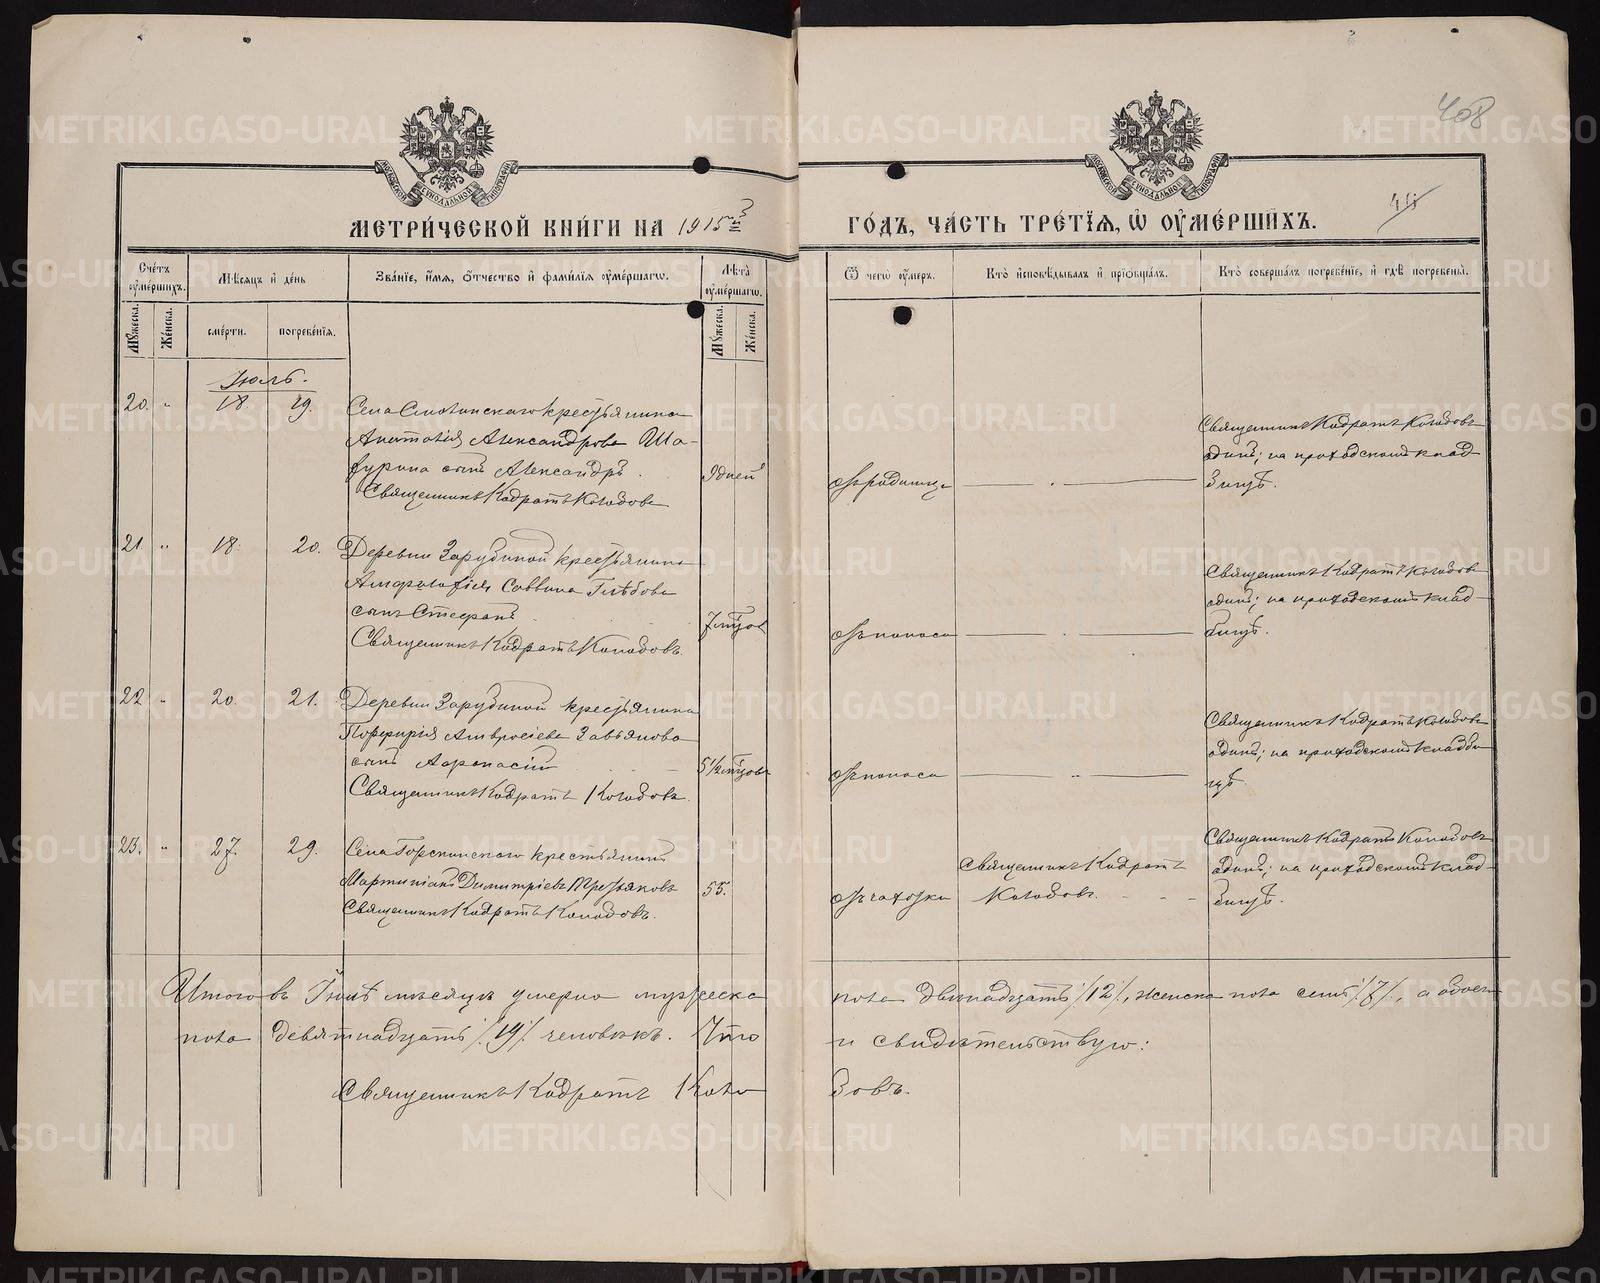 408
МОСКОВСКОЙ СѴНОДАЛЬНОЙ ТИПОГРАФІИ
МОСКОВСКОЙ СѴНОДАЛЬНОЙ ТИПОГРАФІИ
МЕТРИ́ЧЕСКОЙ КНИ́ГИ НА 1915
ГО́ДЪ, ЧА́СТЬ ТРЕ́ТІѦ, Ѡ҆ ОУ҆МЕ́РШИХЪ.
Сче́тъ оу҆ме́ршихъ.
Мѣ́сѧцъ и҆ де́нь
Зва́нїе, и҆́мѧ, ѻ҆́тчество и҆ фами́лїѧ оу҆ме́ршагѡ.
Лѣ́та оу҆ме́ршагѡ.
Ѿ чегѡ̀ оу҆́меръ.
Кто̀ и҆сповѣ́дывалъ и҆ прїѡбща́лъ.
Кто̀ соверша́лъ погребе́нїе, и҆ гдѣ̀ погребены̀.
Мꙋ́жеска.
Же́нска.
сме́рти.
погребе́нїѧ.
Мꙋ́жеска.
Же́нска.
Іюль.
20. " 18. 19. Села Смолинскаго крестьянина
Анатолія Александрова Ша-
фурина сынъ Александръ.
Священникъ Кодратъ Колодовъ
9 дней
отъ родимца
Священникъ Кодратъ Колодовъ
одинъ; на приходскомъ клад-
бищѣ.
21. " 18. 20. Деревни Зарубиной крестьянина
Амфилофія Саввина Глѣбова
сынъ Стефанъ
Священникъ Кодратъ Колодовъ.
7 мѣсяцов
отъ поноса
Священникъ Кодратъ Колодовъ
одинъ; на приходскомъ клад-
бищѣ.
22 " 20. 21. Деревни Зарубиной крестьянина
Порфирія Амвросіева Завьялова
сынъ Афанасій
Священникъ Кодратъ Колодовъ.
5½ мѣсяцовъ
отъ поноса
Священникъ Кодратъ Колодовъ
одинъ; на приходскомъ кладби
щѣ
23. " 27. 29. Села крестьянинъ
Мартиніанъ Димитріевъ Третьяковъ
Священникъ Кодратъ Колодовъ.
55.
отъ чахотки
Священникъ Кодратъ
Колодовъ.
Священникъ Кодратъ Колодовъ
одинъ; на приходскомъ клад-
бищѣ.
Итого въ Іюлѣ мѣсяцѣ умерло мужеска
пола двенадцать /12/, женска пола семь /7/, а обоего
пола девятнадцать /19/ человѣкъ. Что
и свидѣтельствую:
Священникъ Кодратъ Коло
довъ.
METRIKI.GASO-URAL.RU